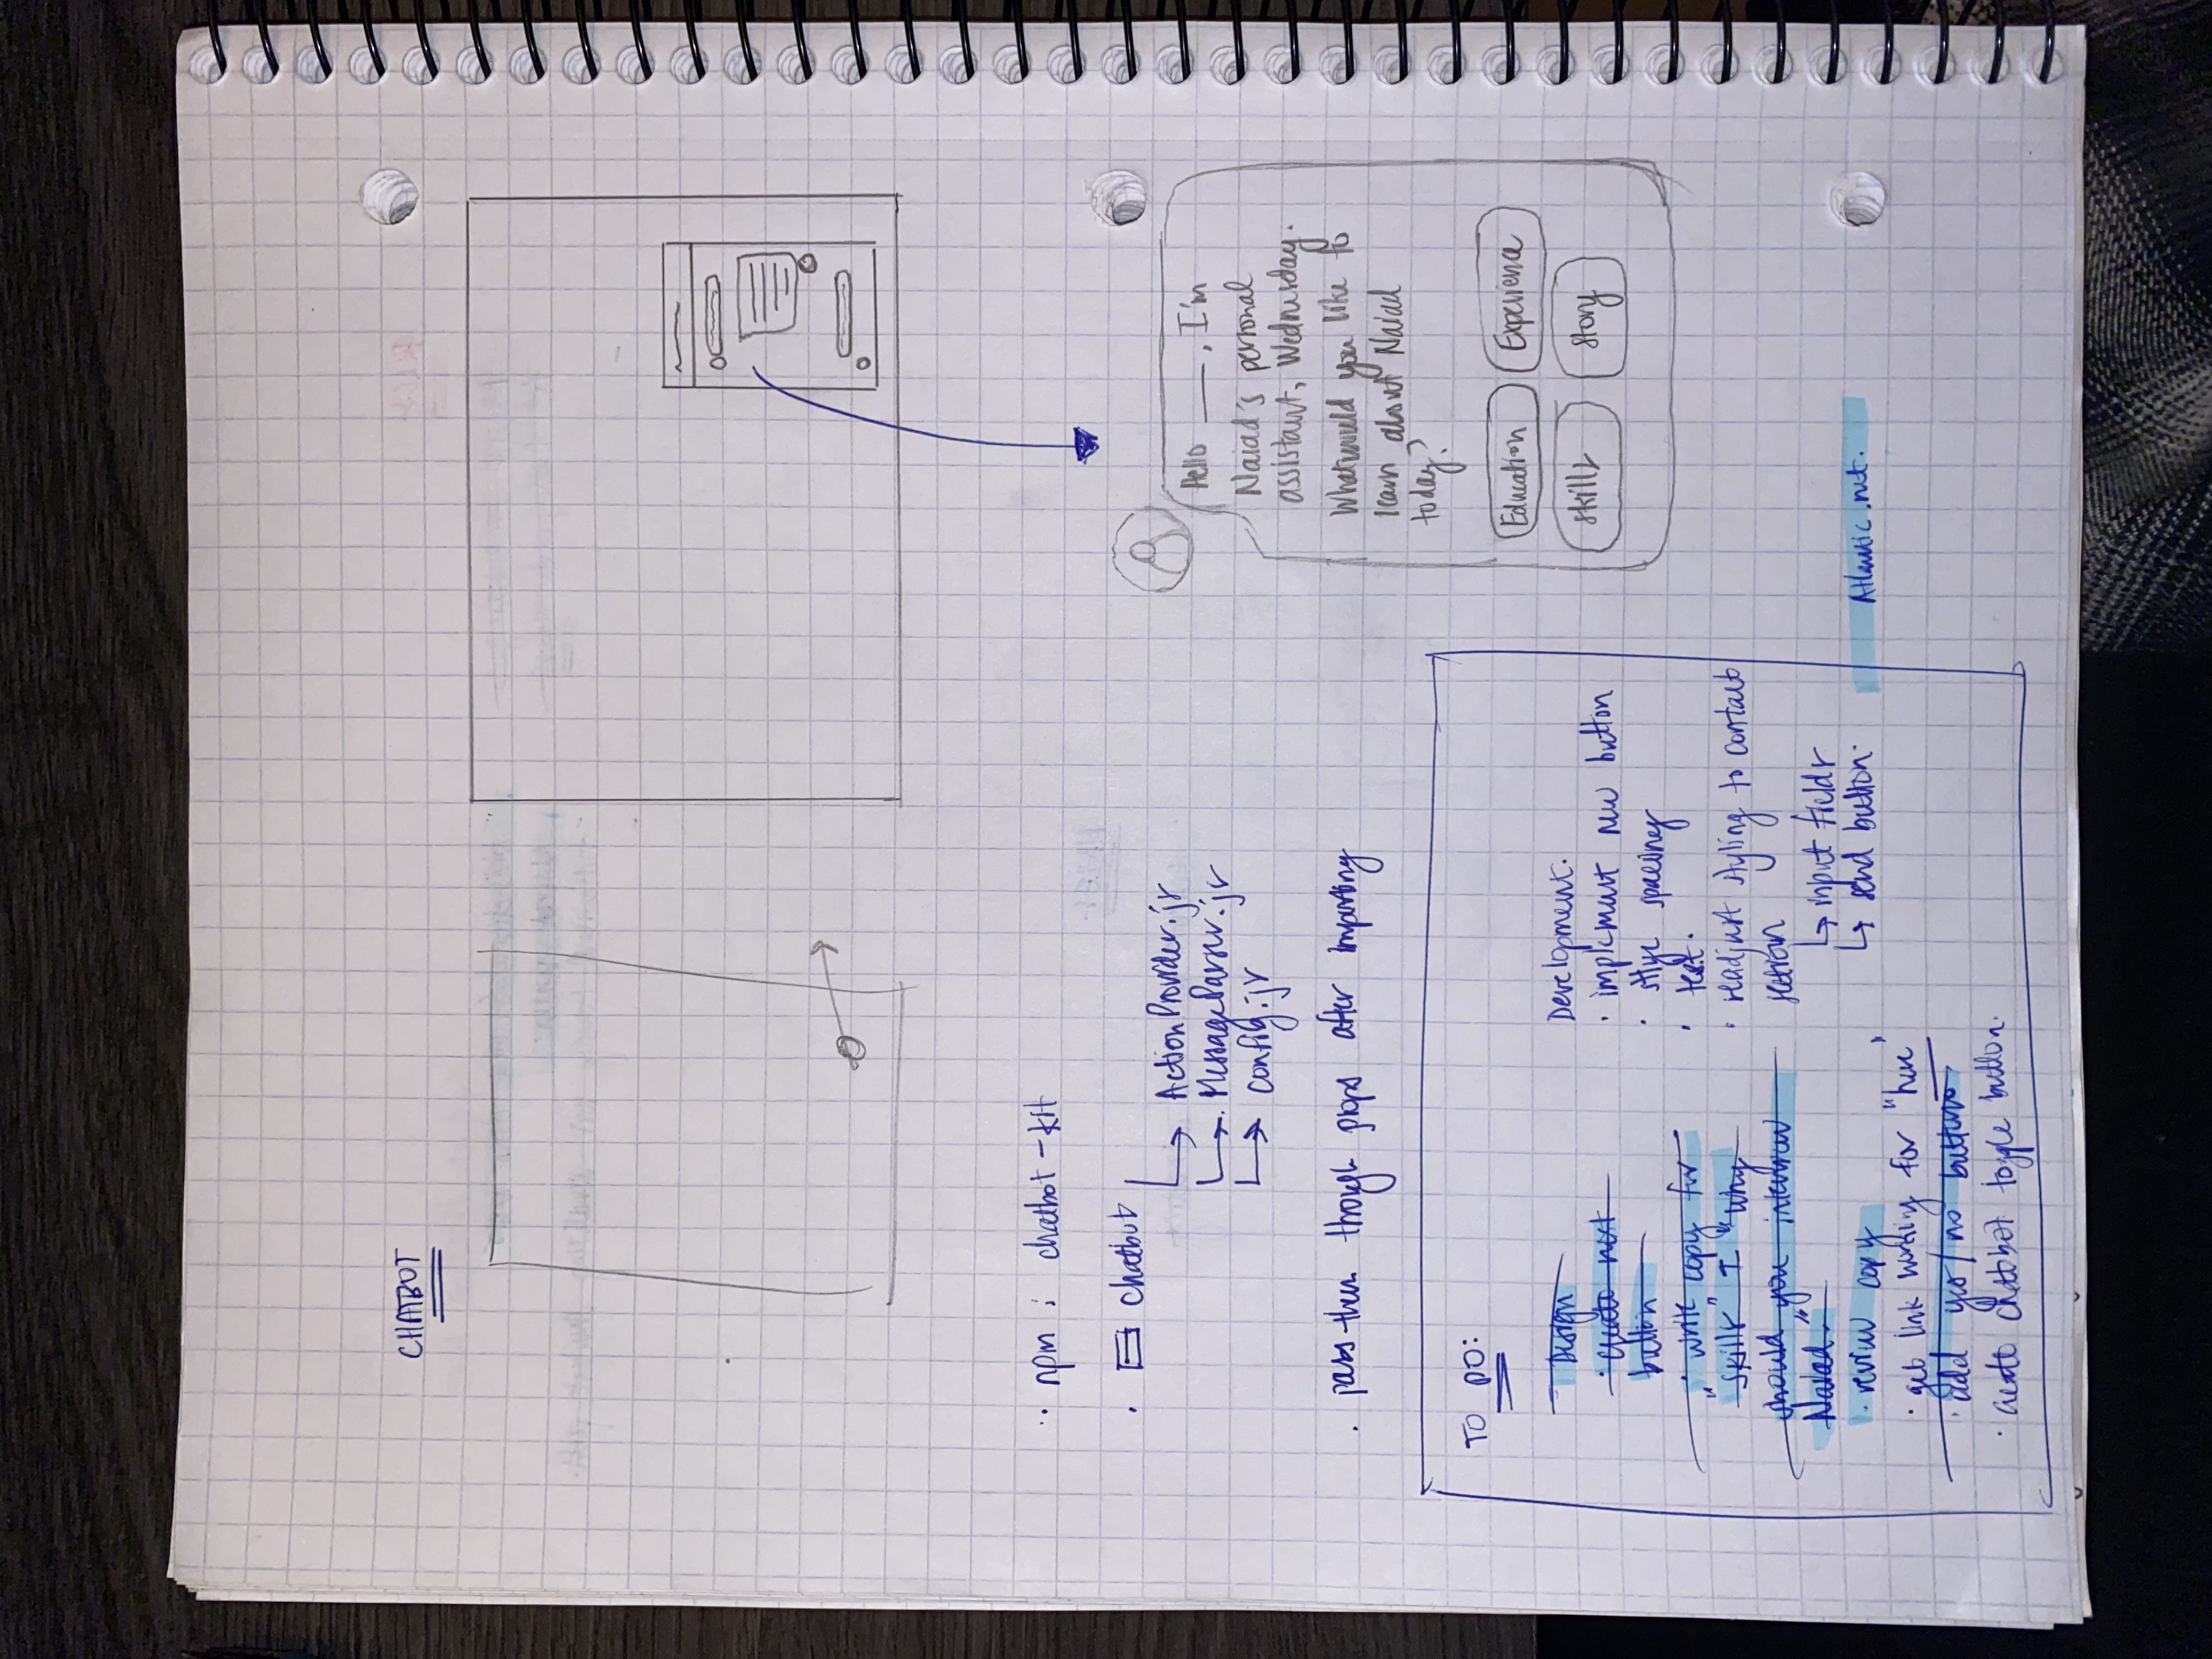 CHATBOT
npm i chatbot-kit
chatbot
ActionProvider.js
MessageParser.js
config.js
pass them through props after importing
Hello ___, I'm
Naiad's personal
assistant, Wednesday.
What would you like to
learn about Naiad
today?
Education
Experience
Skills
Story
TO DO:
Design
· create next
button
· write copy for
"skills" I "why
should you interview
Naiad."
· review copy
· get link working for "here"
· add yes/no buttons
· create chatbot toggle button.
Development.
· implement new button
· style spacing
· test.
· readjust styling to contact
section
input fields
send button.
Atlantic.net.